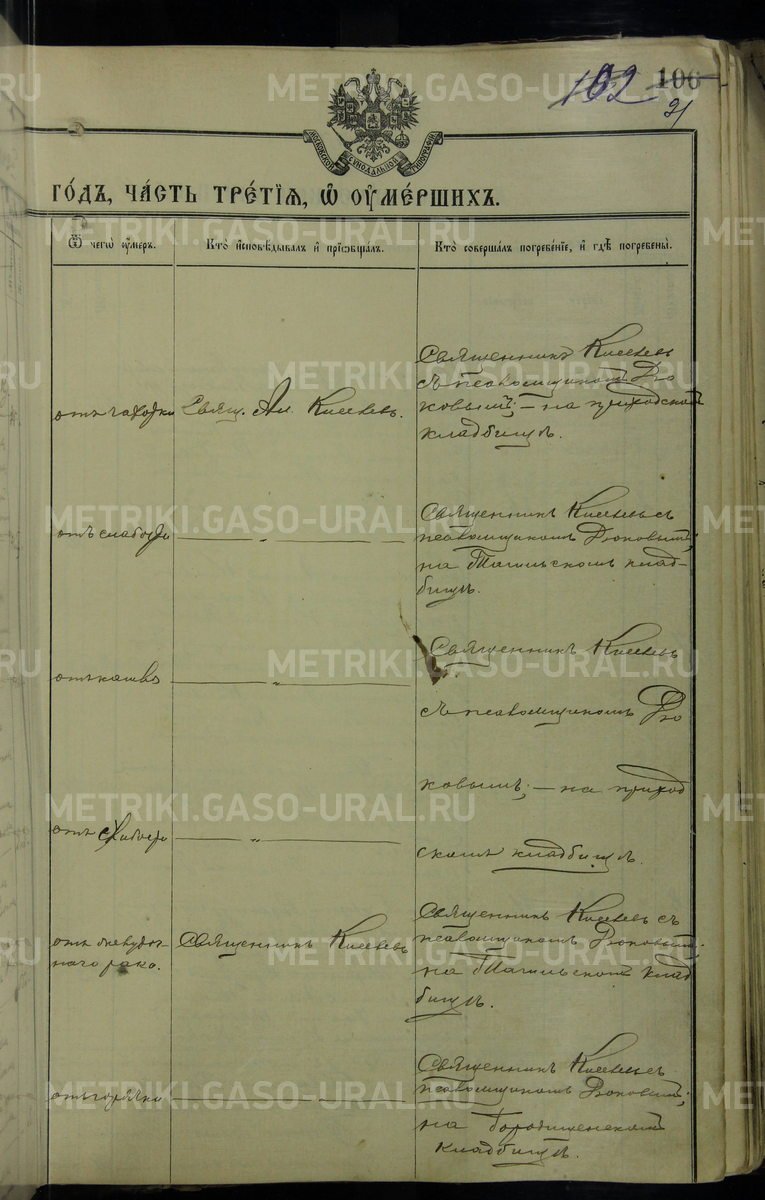 102 106
21
МОСКОВСКОЙ СѴНОДАЛЬНОЙ ТИПОГРАФІИ
ГО́ДЪ, ЧА́СТЬ ТРЕ́ТІѦ, Ѡ҆ ОУ҆МЕ́РШИХЪ.
Ѿ чегѡ̀ ѹ҆́меръ.
Кто̀ и҆сповѣ́дывалъ и҆ прїѡбща́лъ.
Кто̀ соверша́лъ погребе́нїе, и҆ гдѣ̀ погребены̀.
отъ чахотки
Свящ. Ал. Киселевъ.
Священникъ Киселевъ
съ псаломщикомъ Дю
ковымъ; — на приходскомъ
кладбищѣ.
отъ слабости
— „ —
Священникъ Киселевъ съ
псаломщикомъ Дюковымъ;
на Тагильскомъ клад-
бищѣ.
отъ кашля
— „ —
Священникъ Киселевъ
съ псаломщикомъ Дю
ковымъ; — на приход
скомъ кладбищѣ.
отъ слабости
— „ —
отъ желудоч-
наго рака.
Священникъ Киселевъ
Священникъ Киселевъ съ
псаломщикомъ Дюковымъ;
на Тагильскомъ клад
бищѣ.
отъ горячки
— „ —
Священникъ Киселевъ съ
псаломщикомъ Дюковымъ;
на Городищенскомъ
кладбищѣ.
METRIKI.GASO-URAL.RU